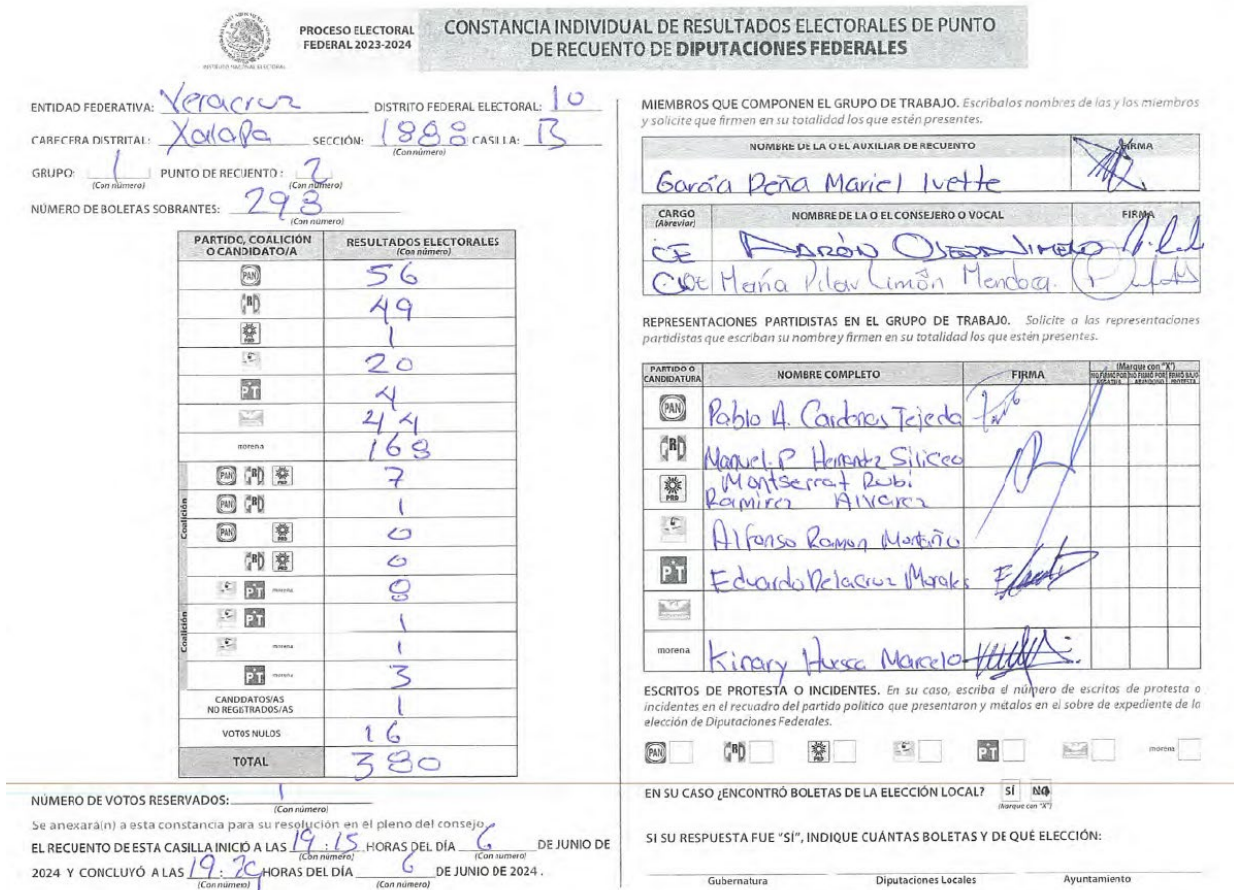 INSTITUTO NACIONAL ELECTORAL
PROCESO ELECTORAL
FEDERAL 2023-2024
CONSTANCIA INDIVIDUAL DE RESULTADOS ELECTORALES DE PUNTO
DE RECUENTO DE DIPUTACIONES FEDERALES
ENTIDAD FEDERATIVA: Veracruz DISTRITO FEDERAL ELECTORAL: 10
CABECERA DISTRITAL: Xalapa SECCIÓN: 1888 CASILLA: B
(Con número)
GRUPO: 1 PUNTO DE RECUENTO: 2
(Con número) (Con número)
NÚMERO DE BOLETAS SOBRANTES: 298
(Con número)
PARTIDO, COALICIÓN O CANDIDATO/A RESULTADOS ELECTORALES (Con número)
PAN 56
PRI 49
PRD 1
20
PT 4
44
morena 168
Coalición
PAN PRI PRD 7
PAN PRI 1
PAN PRD 0
PRI PRD 0
Coalición
PT morena 8
PT 1
morena 1
PT morena 3
CANDIDATOS/AS NO REGISTRADOS/AS 1
VOTOS NULOS 16
TOTAL 380
NÚMERO DE VOTOS RESERVADOS: 1
(Con número)
Se anexará(n) a esta constancia para su resolución en el pleno del consejo.
EL RECUENTO DE ESTA CASILLA INICIÓ A LAS 19:15 HORAS DEL DÍA 6 DE JUNIO DE
(Con número) (Con número)
2024 Y CONCLUYÓ A LAS 19: HORAS DEL DÍA 6 DE JUNIO DE 2024.
(Con número) (Con número)
MIEMBROS QUE COMPONEN EL GRUPO DE TRABAJO. Escriba los nombres de las y los miembros
y solicite que firmen en su totalidad los que estén presentes.
NOMBRE DE LA O EL AUXILIAR DE RECUENTO FIRMA
García Peña Mariel Ivette
CARGO (Abreviar) NOMBRE DE LA O EL CONSEJERO O VOCAL FIRMA
CE AARÓN
María Pilar Limón Mendoza.
REPRESENTACIONES PARTIDISTAS EN EL GRUPO DE TRABAJO. Solicite a las representaciones
partidistas que escriban su nombre y firmen en su totalidad los que estén presentes.
PARTIDO O CANDIDATURA NOMBRE COMPLETO FIRMA (Marque con "X")
NO FIRMÓ POR NEGATIVA NO FIRMÓ POR ABANDONO FIRMÓ BAJO PROTESTA
PAN Pablo A. Cardenas Tejeda
PRI Manuel P Siliceo
PRD Montserrat Rubi
Ramirez Alvarez
Alfonso Ramon Montaño
PT Eduardo Delacruz Morales
morena Kinary Huesca Marcelo
ESCRITOS DE PROTESTA O INCIDENTES. En su caso, escriba el número de escritos de protesta o
incidentes en el recuadro del partido político que presentaron y métalos en el sobre de expediente de la
elección de Diputaciones Federales.
PAN PRI PRD PT morena
EN SU CASO ¿ENCONTRÓ BOLETAS DE LA ELECCIÓN LOCAL? SÍ NO
(Marque con "X")
SI SU RESPUESTA FUE "SÍ", INDIQUE CUÁNTAS BOLETAS Y DE QUÉ ELECCIÓN:
Gubernatura Diputaciones Locales Ayuntamiento